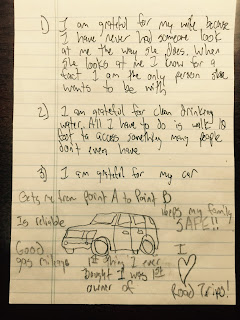 1) I am grateful for my wife because
I have never had someone look
at me the way she does. When
she looks at me I know for a
fact I am the only person she
wants to be with
2) I am grateful for clean drinking
water. All I have to do is walk 10
foot to access something many people
don't even have
3) I am grateful for my car
Gets me from Point A to Point B
Keeps my family
SAFE!!
Is reliable
Good
gas mileage
1st thing I ever
bought I was 1st
owner of
I
Road Trips!